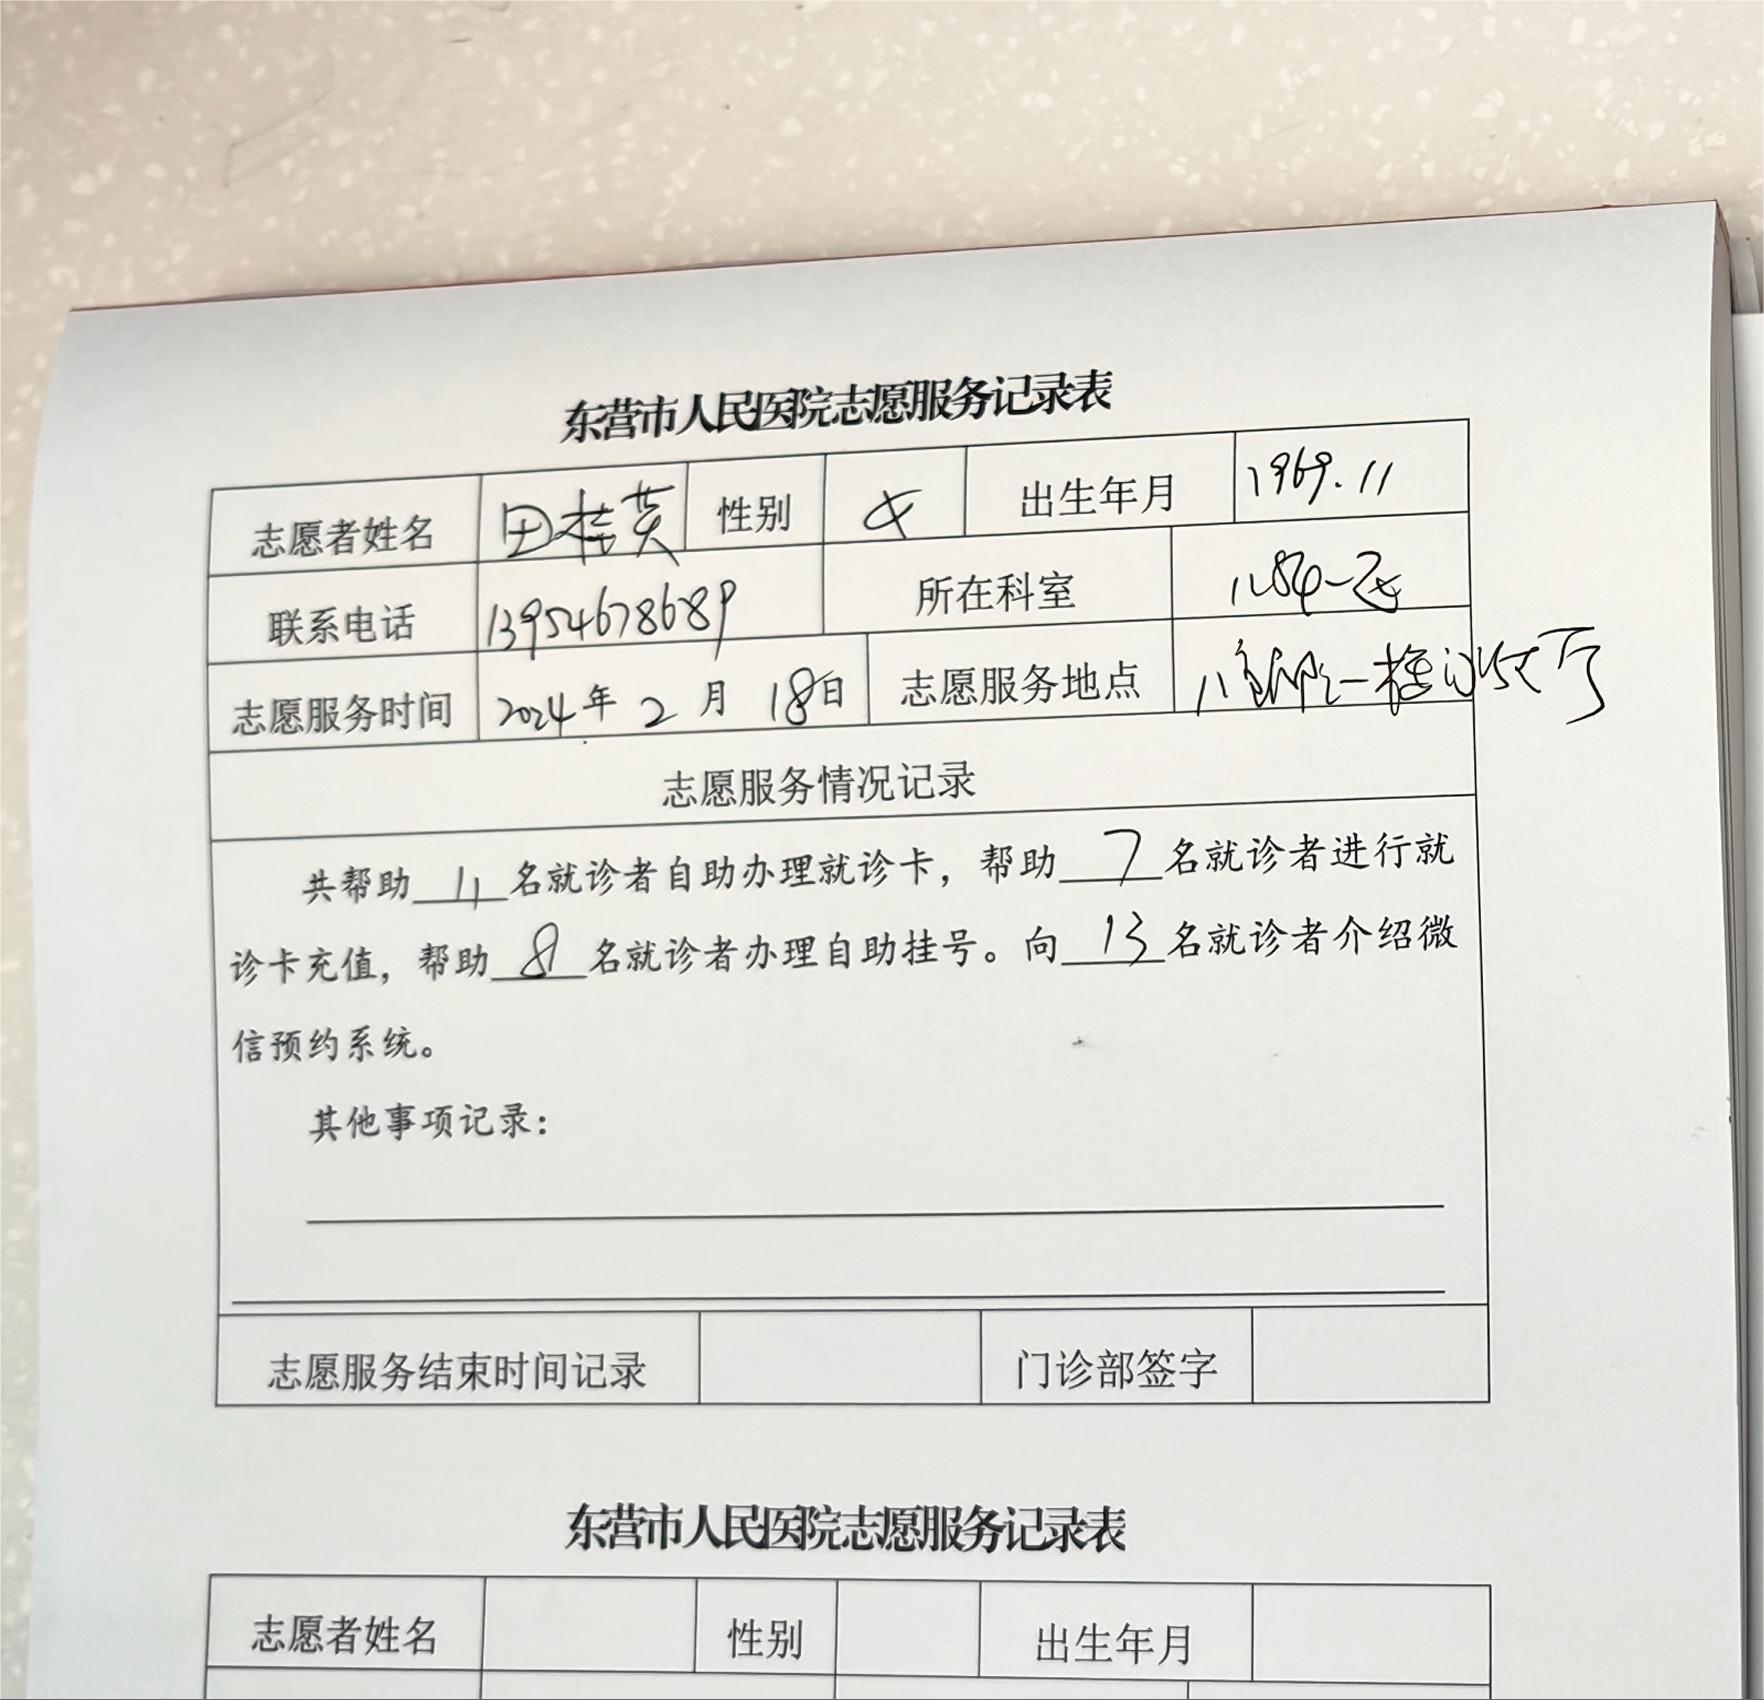 东营市人民医院志愿服务记录表
志愿者姓名 田桂英 性别 女 出生年月 1969.11
联系电话 13954678689 所在科室
志愿服务时间 2024年2月18日 志愿服务地点
志愿服务情况记录
共帮助 4 名就诊者自助办理就诊卡，帮助 7 名就诊者进行就
诊卡充值，帮助 8 名就诊者办理自助挂号。向 13 名就诊者介绍微
信预约系统。
其他事项记录：
志愿服务结束时间记录 门诊部签字
东营市人民医院志愿服务记录表
志愿者姓名 性别 出生年月